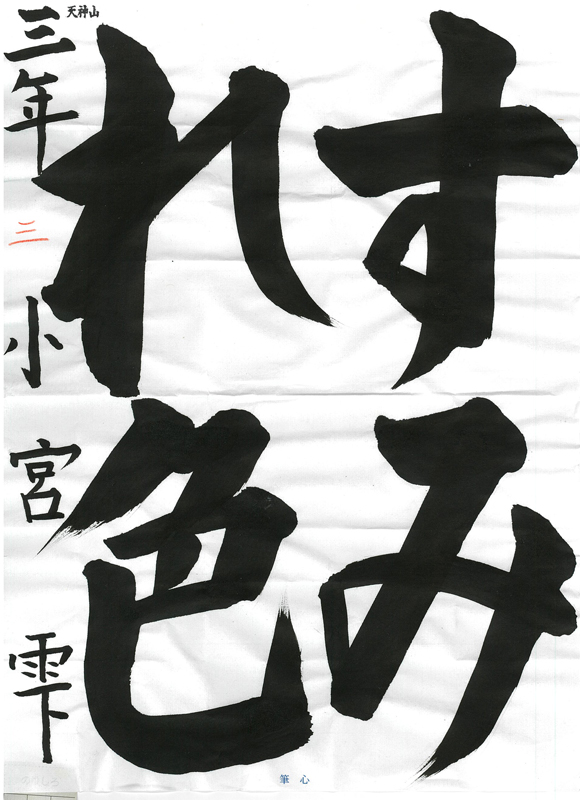 すみ
れ色
天神山
三年
三
小宮雫
筆心